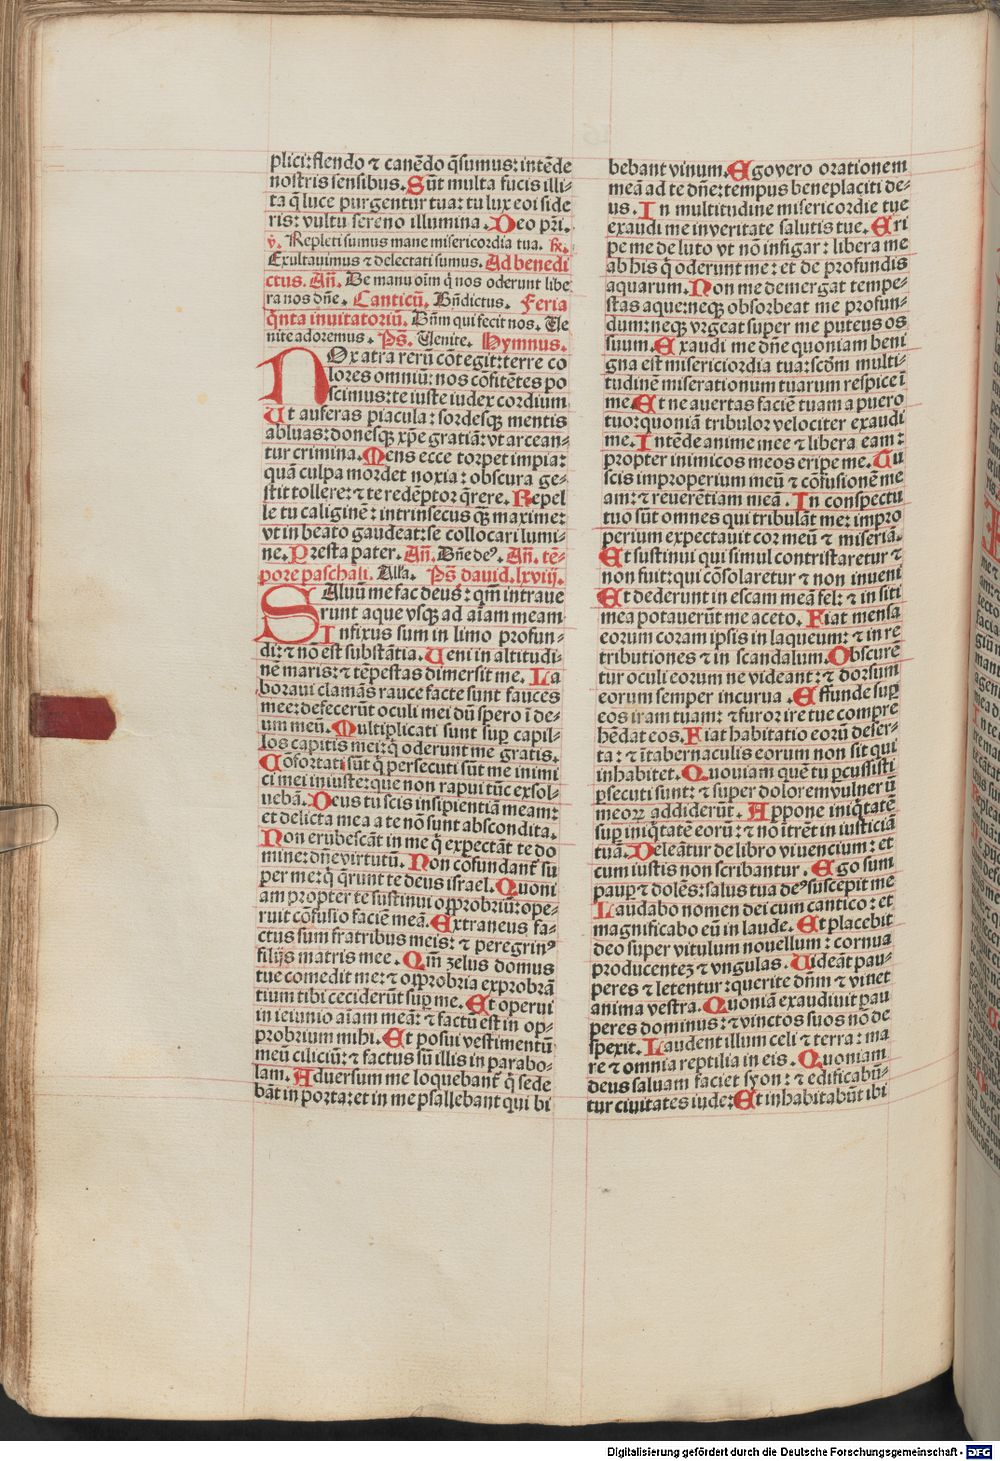 plici: flendo ⁊ canēdo q̄sumus: intēde
nostris sensibus. Sūt multa fucis illi-
ta q̄ luce purgentur tua: tu lux eoi side
ris: vultu sereno illumina. Deo pr̄i.
v̄. Repleti sumus mane misericordia tua. R̄.
Exultauimus ⁊ delectati sumus. Ad benedi
ctus. An̄. De manu oīm q̄ nos oderunt libe
ra nos dn̄e. Canticū. Bn̄dictus. Feria
q̄nta inuitatoriū. Dn̄m qui fecit nos. Ve
nite adoremus. Ps̄. Venite. Hymnus.
NOx atra rerū cōtegit: terre co
lores omniū: nos cōfitētes po
scimus: te iuste iudex cordium
Ut auferas piacula: sordesqȝ mentis
abluas: donesqȝ xp̄e gratiā: vt arcean-
tur crimina. Mens ecce torpet impia:
quā culpa mordet noxia: obscura ge-
stit tollere: ⁊ te redēptor q̄rere. Repel
le tu caliginē: intrinsecus qȝ maxime:
vt in beato gaudeat: se collocari lumi-
ne. Presta pater. An̄. Bn̄e deꝰ. An̄. tē-
pore paschali. Alla. Ps̄ dauid. lxviij.
SAluū me fac deus: qm̄ intraue
runt aque vsqȝ ad aīam meam
Infixus sum in limo profun-
di: ⁊ nō est substātia. Ueni in altitudi-
nē maris: ⁊ tēpestas dimersit me. La
boraui clamās rauce facte sunt fauces
mee: defecerūt oculi mei dū spero ī de-
um meū. Multiplicati sunt sup capil-
los capitis mei: q̄ oderunt me gratis.
Cōfortati sūt q̄ persecuti sūt me inimi
ci mei iniuste: que non rapui tūc exsol-
uebā. Deus tu scis insipientiā meam:
et delicta mea a te nō sunt abscondita.
Non erubescāt in me q̄ expectāt te do
mine: dn̄e virtutū. Non cōfundant̄ su
per me: q̄ q̄runt te deus israel. Quoni
am propter te sustinui opprobriū: ope-
ruit cōfusio faciē meā. Extraneus fa-
ctus sum fratribus meis: ⁊ peregrinꝰ
filijs matris mee. Qm̄ zelus domus
tue comedit me: ⁊ opprobria exprobrā
tium tibi ceciderūt sup me. Et operui
in ieiunio aīam meā: ⁊ factū est in op-
probrium mihi. Et posui vestimentū
meū ciliciū: ⁊ factus sū illis in parabo-
lam. Aduersum me loquebant̄ q̄ sede
bāt in porta: et in me psallebant qui bi
bebant vinum. Ego vero orationem
meā ad te dn̄e: tempus beneplaciti de-
us. In multitudine misericordie tue
exaudi me in veritate salutis tue. Eri
pe me de luto vt nō infigar: libera me
ab his q̄ oderunt me: et de profundis
aquarum. Non me demergat tempe-
stas aque: neqȝ obsorbeat me profun-
dum: neqȝ vrgeat super me puteus os
suum. Exaudi me dn̄e quoniam beni
gna est misericordia tua: scd̄m multi-
tudinē miserationum tuarum respice ī
me. Et ne auertas faciē tuam a puero
tuo: quoniā tribulor velociter exaudi
me. Intēde anime mee ⁊ libera eam:
propter inimicos meos eripe me. Tu
scis improperium meū ⁊ cōfusionē me
am: ⁊ reuerētiam meā. In conspectu
tuo sūt omnes qui tribulāt me: impro
perium expectauit cor meū ⁊ miseriā.
Et sustinui qui simul contristaretur ⁊
non fuit: qui cōsolaretur ⁊ non inueni
Et dederunt in escam meā fel: ⁊ in siti
mea potauerūt me aceto. Fiat mensa
eorum coram ipsis in laqueum: ⁊ in re
tributiones ⁊ in scandalum. Obscurē
tur oculi eorum ne videant: ⁊ dorsum
eorum semper incurua. Effunde sup
eos iram tuam: ⁊ furor ire tue compre
hēdat eos. Fiat habitatio eorū deser-
ta: ⁊ ī tabernaculis eorum non sit qui
inhabitet. Quoniam quē tu pcussisti
psecuti sunt: ⁊ super dolorem vulnerū
meoꝝ addiderūt. Appone iniq̄tatē
sup iniq̄tatē eorū: ⁊ nō itrēt in iusticiā
tuā. Deleātur de libro viuencium: et
cum iustis non scribantur. Ego sum
paup ⁊ dolēs: salus tua deꝰ suscepit me
Laudabo nomen dei cum cantico: et
magnificabo eū in laude. Et placebit
deo super vitulum nouellum: cornua
producentez ⁊ vngulas. Uideāt pau-
peres ⁊ letentur: querite dn̄m ⁊ viuet
anima vestra. Quoniā exaudiuit pau
peres dominus: ⁊ vinctos suos nō de
spexit. Laudent illum celi ⁊ terra: ma
re ⁊ omnia reptilia in eis. Quoniam
deus saluam faciet syon: ⁊ edificabū-
tur ciuitates iude: Et inhabitabūt ibi
Digitalisierung gefördert durch die Deutsche Forschungsgemeinschaft - DFG